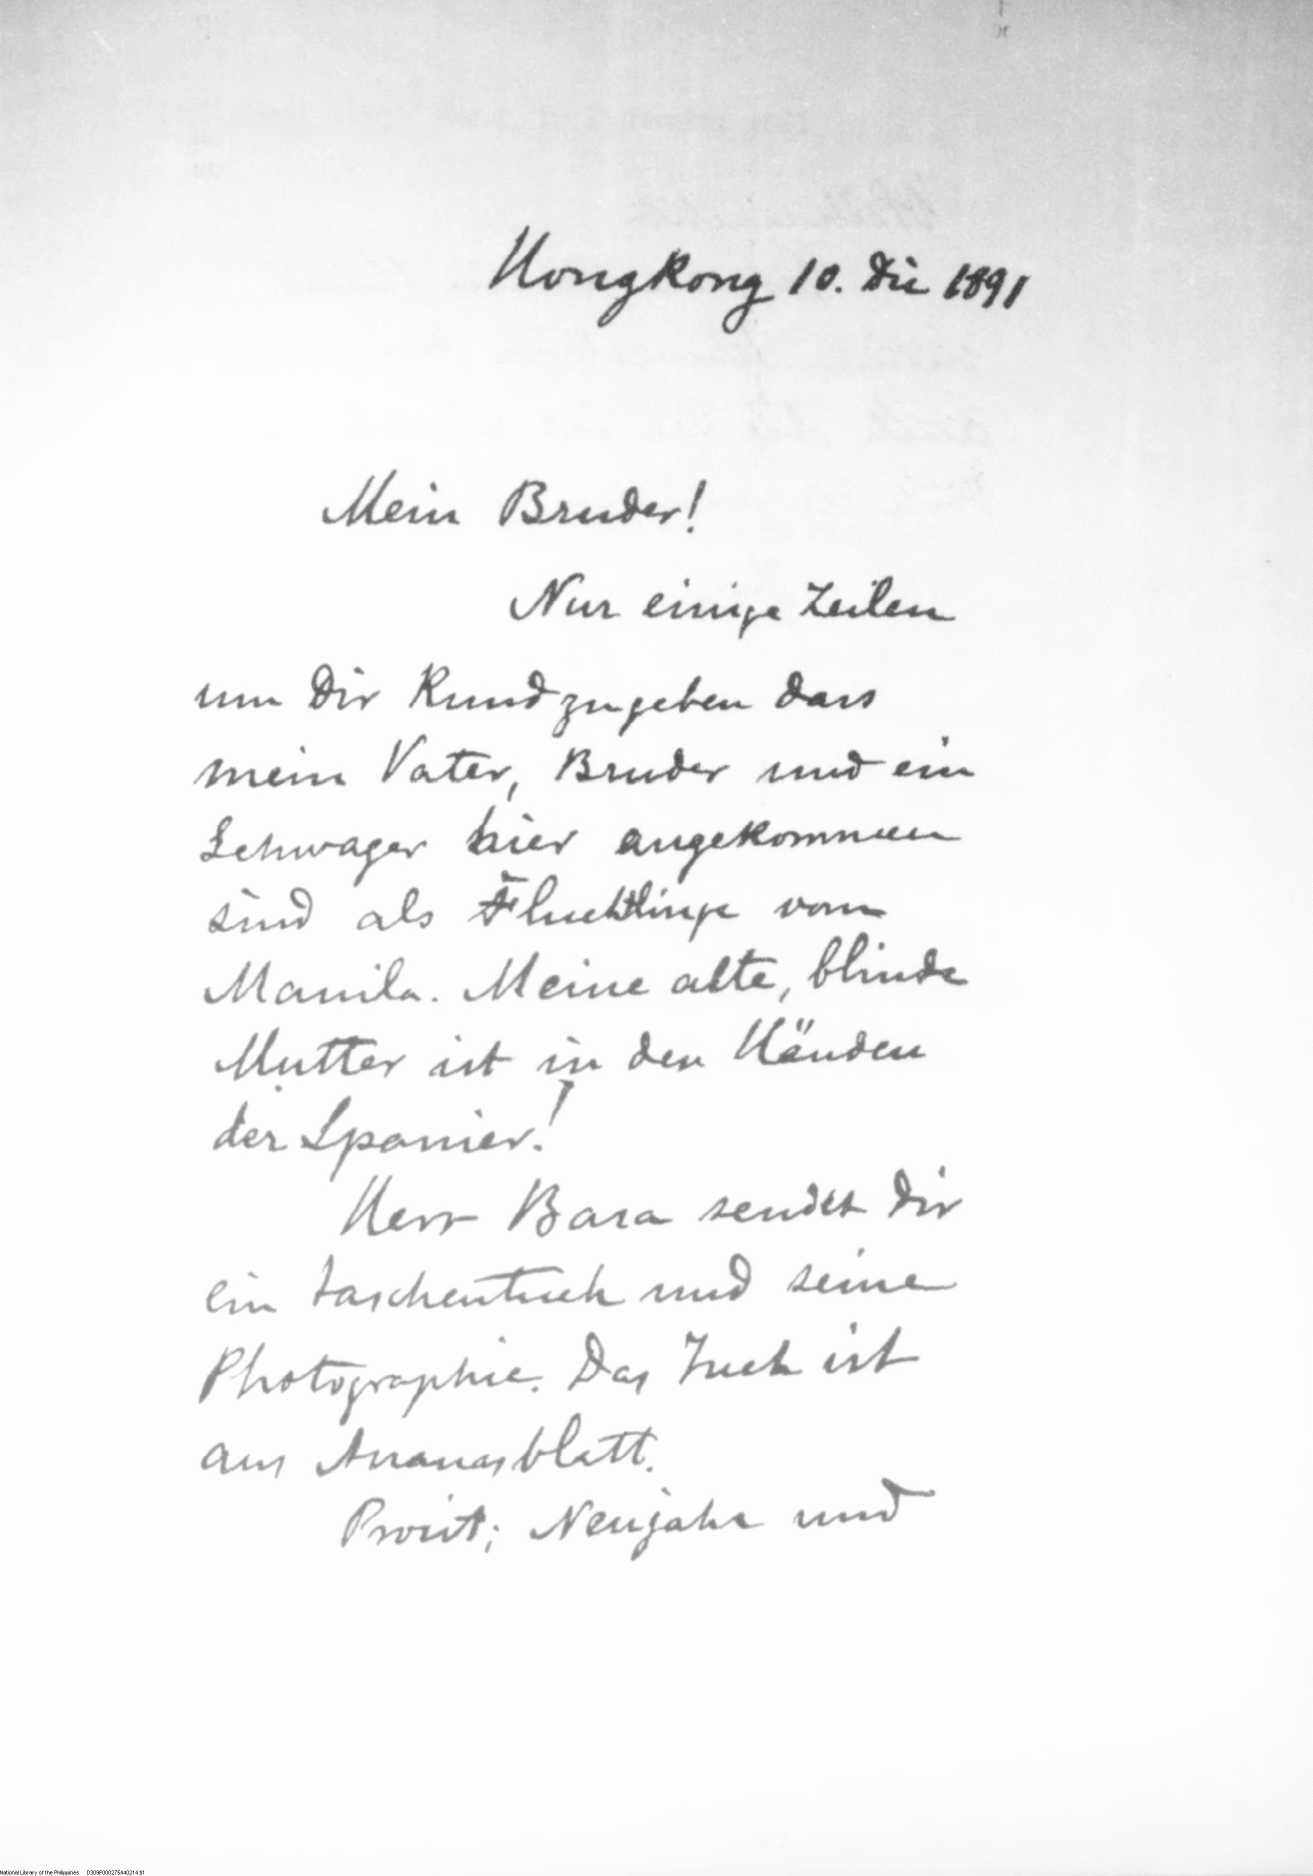 Hongkong 10. Dic 1891
Mein Bruder!
Nur einige Zeilen
um Dir Kundzugeben dass
mein Vater, Bruder und ein
Schwager hier angekommen
sind als Fluchtlinge vom
Manila. Meine alte, blinde
Mutter ist in den Händen
der Spanier!
Herr Basa sendet Dir
ein taschentuch und seine
Photographie. Das Tuch ist
aus Ananasblatt.
Prosit; Neujahr und
National Library of the Philippines